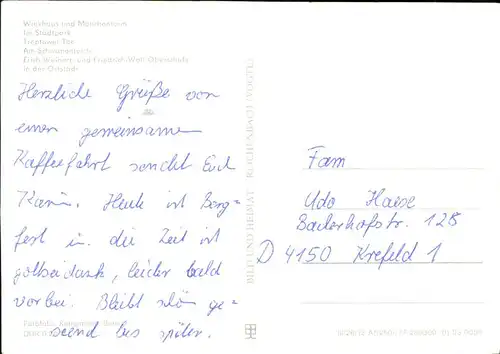 Wiekhaus und Mönchenturm
Im Stadtpark
Treptower Tor
Am Schwanenteich
Erich-Weinert- und Friedrich-Wolf-Oberschule
in der Oststadt
Herzliche Grüße von
einer gemeinsamen
Kaffeefahrt sendet Euch
Karin. Heute ist Berg-
fest u. die Zeit ist
gottseidank, leider bald
vorbei. Bleibt schön ge-
sund bis später.
BILD UND HEIMAT REICHENBACH (VOGTL)
Fam
Udo Haase
Baderhofstr. 128
D 4150 Krefeld 1